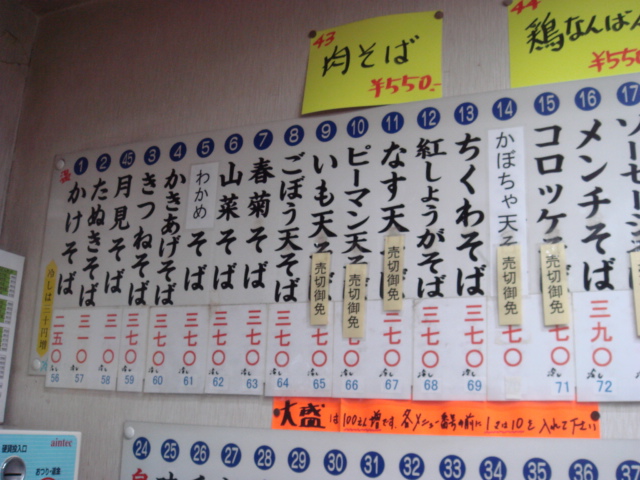 43
肉そば
¥550.-
44
鶏なんばん
¥550
1
かけそば
二五〇
56
2
たぬきそば
三一〇
57
45
月見そば
三一〇
58
3
きつねそば
三七〇
59
4
かきあげそば
三七〇
60
5
わかめそば
三七〇
61
6
山菜そば
三七〇
62
7
春菊そば
三七〇
63
8
ごぼう天そば
三七〇
64
9
いも天そ
売切御免
七〇
65
10
ピーマン天
売切御免
七〇
66
11
なす天
売切御免
七〇
67
12
紅しょうがそば
三七〇
68
13
ちくわそば
三七〇
69
14
かぼちゃ天そ
売切御免
七〇
15
コロッケ
売切御免
〇
71
16
メンチそば
三九〇
72
17
冷しは三十円増
大盛は100えん増です。各メニュー番号の前に1又は10を入れて下さい
24
25
26
27
28
29
30
31
32
33
34
35
36
37
硬貨投入口
aintec
おつり・返却